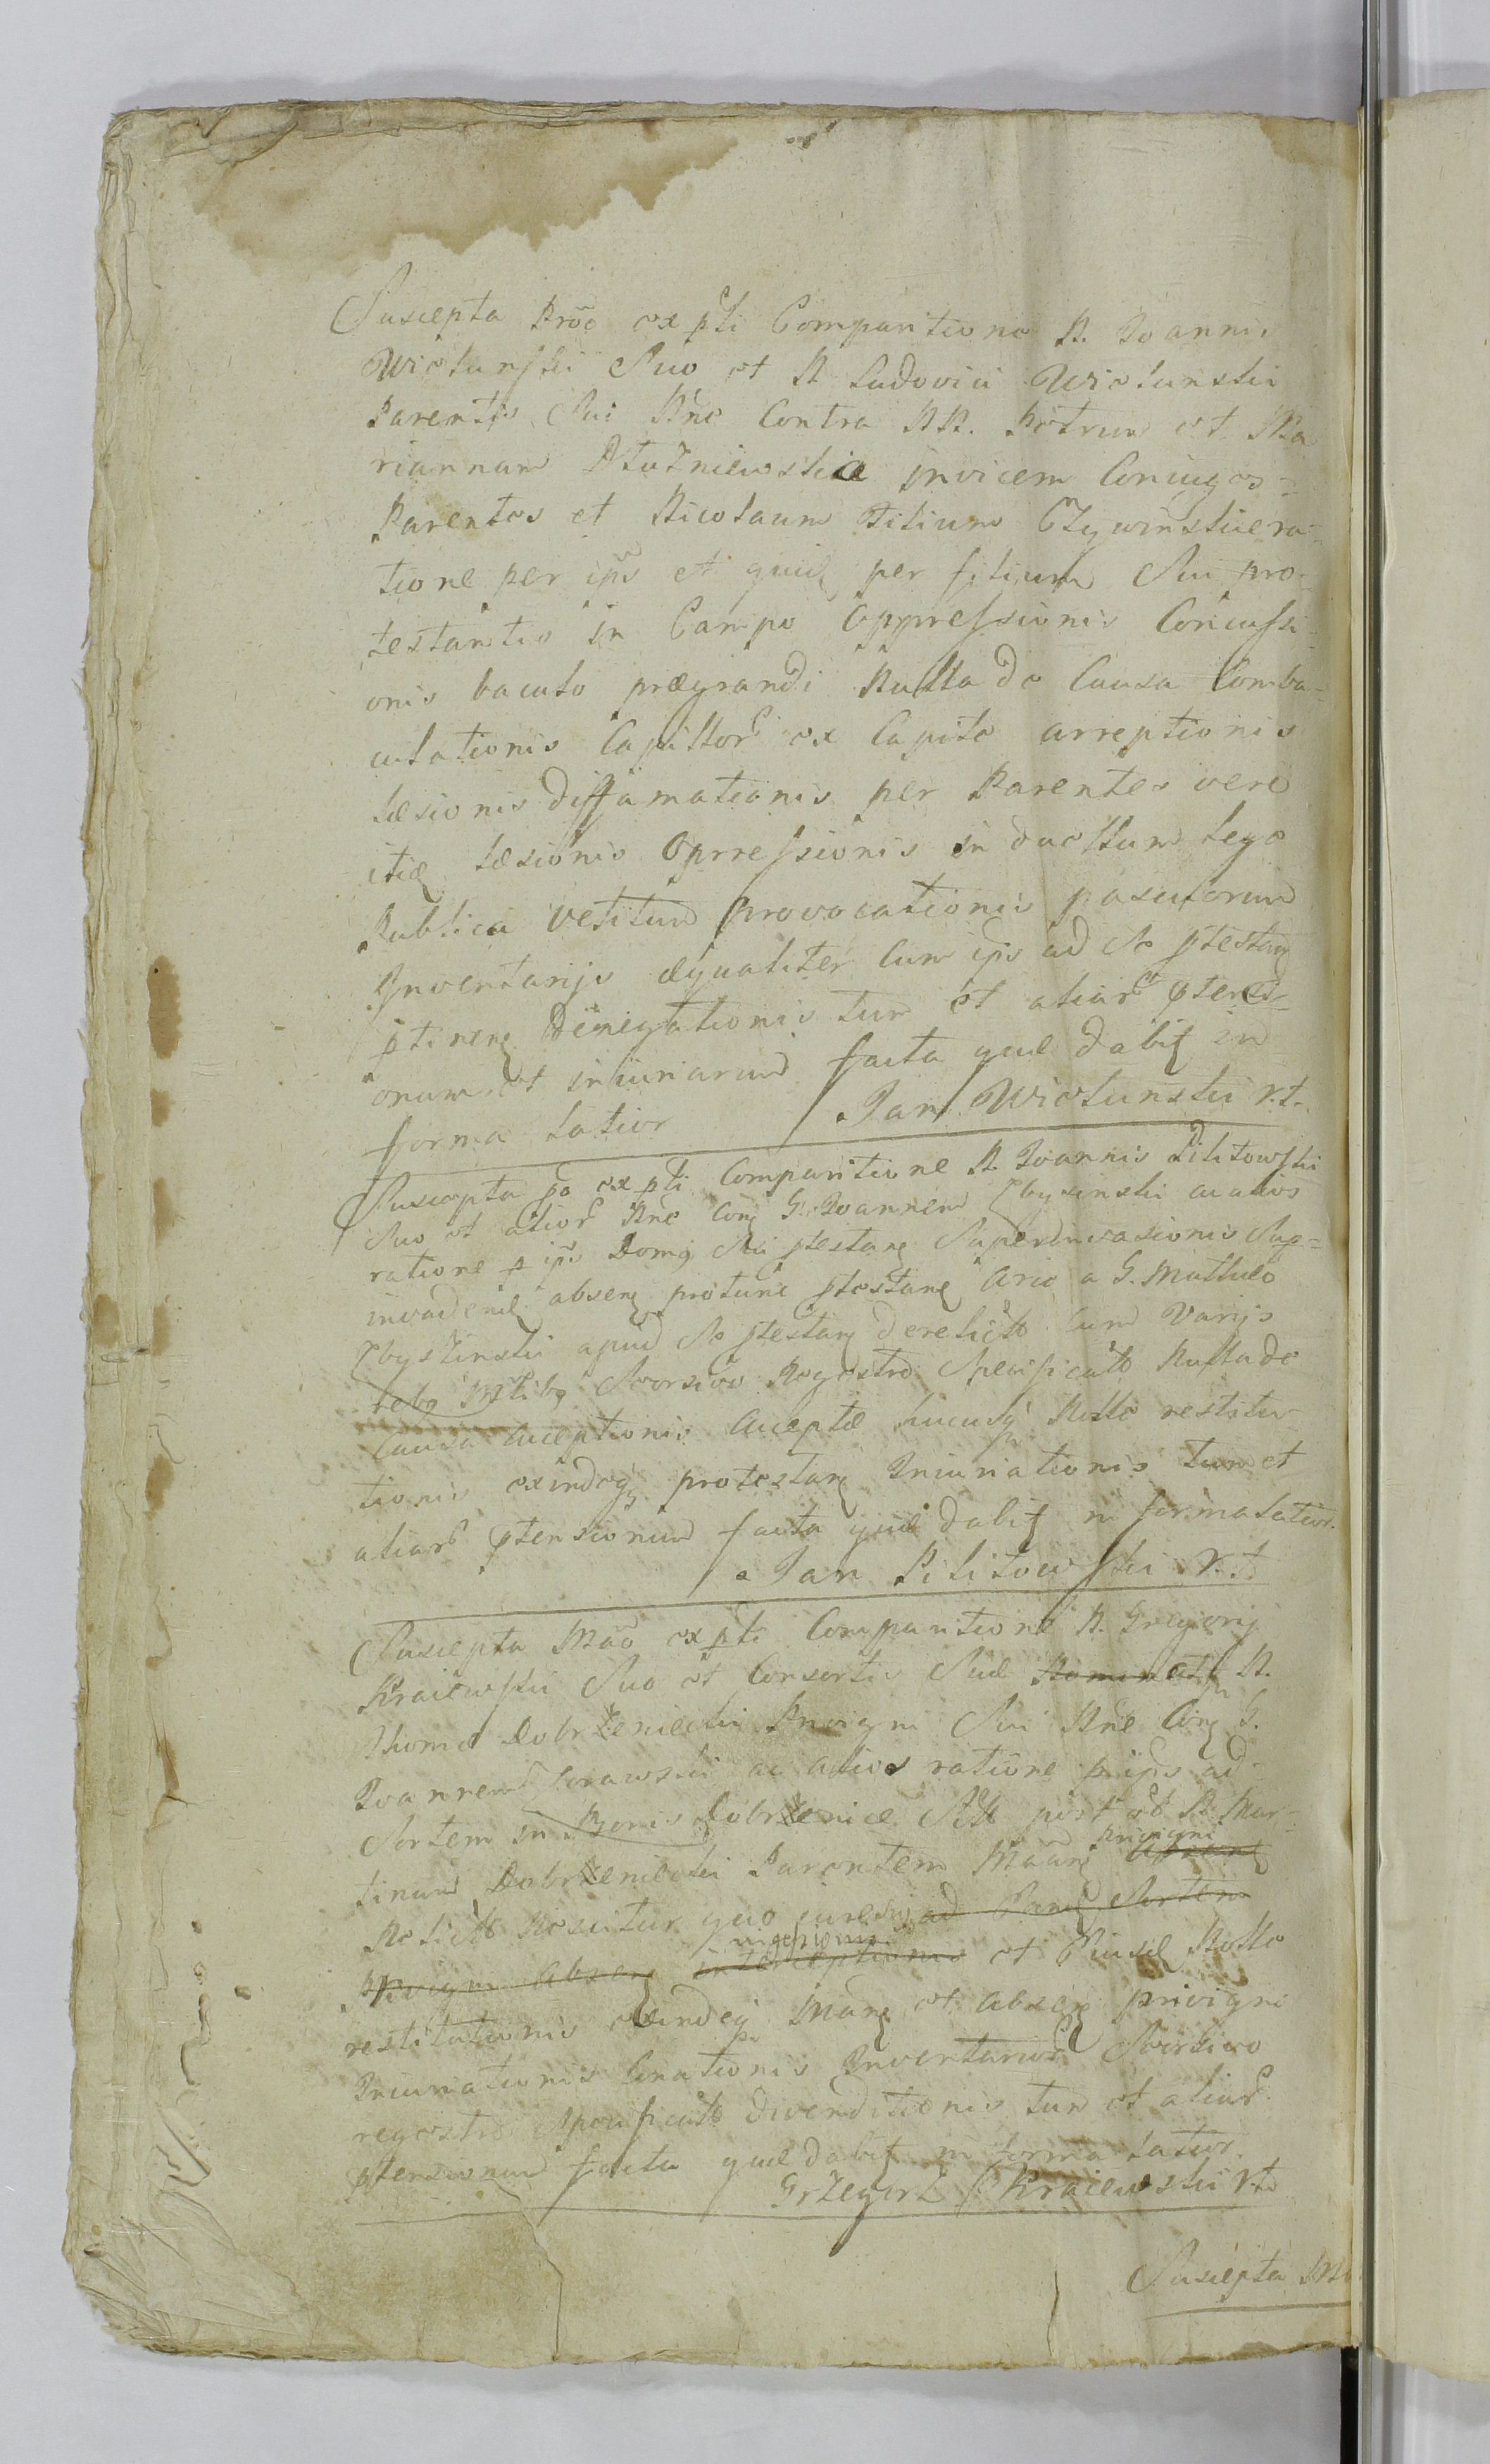 Suscepta Prõe ex pti Comparitione N. Joannis
Wiolunski Suo et N. Ludovici Wiolunski
Parentis Sui Nne Contra NN. Petrum et Ma
riannam Dłużniewskie invicem Coniuges
Parentes et Nicolaum Filium Czywinskie ra
tione per ips et quid per filium Sui pro
testantis in Campo Oppressionis Concussi
onis baculo prægrandi Nulla de Causa Comba
culationis Capillor ex Capite arreptionis
læsionis diffamationis per Parentes vero
itid læsionis Opressionis in duellum lege
Publica vetitum provocationis pascuorum
Inventarijs æqualiter cum ips ad Se ptestan
ptinen Denegationis tum et aliar ptensi
onum et iniuriarum facta quæ dabit in
forma latior Jan Wiolunski r.t.
Suscepta põ ex pti Comparitione N. Joannis Pilitowski
Suo et alior Nne Con G. Joannem Zbysinski ac alios
ratione p ips Domo Sui ptestan Superinvasionis Sup
invadend absen protunc ptestan Ario a G. Mathæo
Zbyszinski apud Se ptestan derelicto cum Varijs
rebo Seorsivo Regestro Specificato Nulla de
Causa acceptionis acceptæ hucusq Nullo restitu
tionis exindeq protestan Iniuriationis tum et
aliar ptensionum facta quæ dabit in forma latior.
Jan Pilitowski r.t.
Suscepta Mão ex pti Comparitione N. Gregorij
Kraiewski Suo et Consortis Suæ N.
Thomæ Dobrzeniecki Privigni Sui Nne Con G.
Joannem Zorawski ac alios ratione p ips ad
Sortem in Bonis Dobrzenice Sto post N. Mar
tinum Dobrzeniecki Parentem Man privigni
Relicto Nescitur quo iure ad Sortem
privigni Absen interceptionis et Nullo
restitutionis exindeq Man et absen privigni
Iniuriationis Inventarior Seorsivo
regestro Specificato divenditionis tum et aliar
ptensionum facta quæ dabit in forma latior.
Grzegorz Kraiewski r.t.
Suscepta M